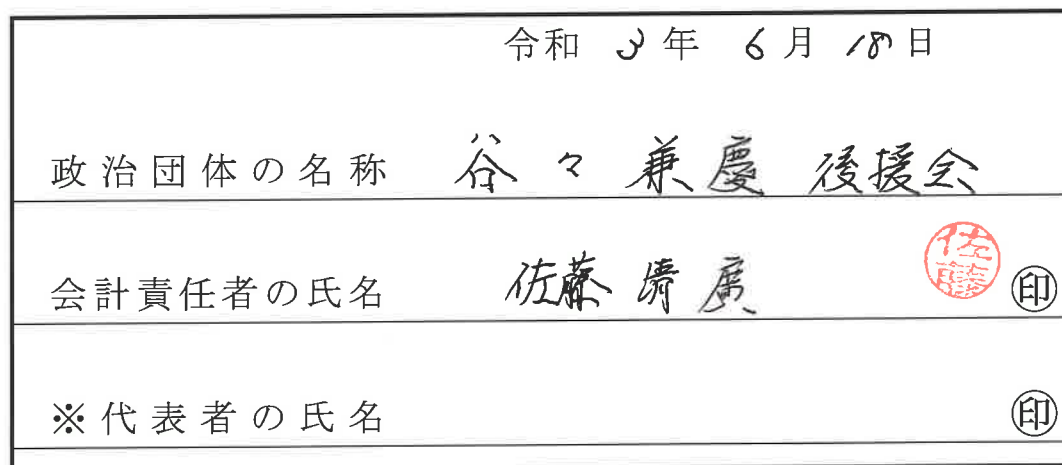 令和 3年 6月 18日
政治団体の名称 谷々兼慶 後援会
会計責任者の氏名 佐藤清廣 佐藤 印
※代表者の氏名 印